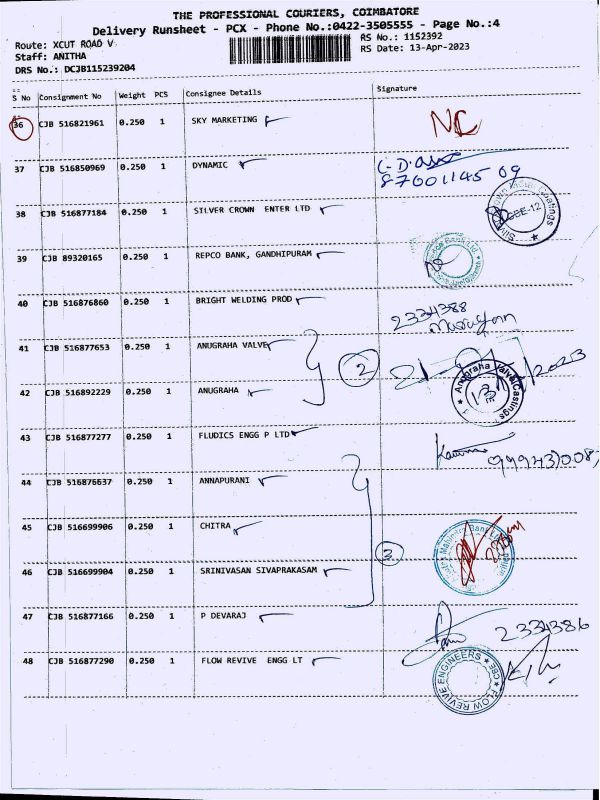 THE PROFESSIONAL COURIERS, COIMBATORE
Delivery Runsheet - PCX - Phone No.:0422-3505555 - Page No.:4
Route: XCUT ROAD V
RS No.: 1152392
Staff: ANITHA
RS Date: 13-Apr-2023
DRS No.: DCJB115239204
S No Consignment No Weight PCS Consignee Details Signature
36 CJB 516821961 0.250 1 SKY MARKETING NC
37 CJB 516850969 0.250 1 DYNAMIC
8700114509
38 CJB 516877184 0.250 1 SILVER CROWN ENTER LTD
CBE-12
39 CJB 89320165 0.250 1 REPCO BANK, GANDHIPURAM
40 CJB 516876860 0.250 1 BRIGHT WELDING PROD
2334388
41 CJB 516877653 0.250 1 ANUGRAHA VALVE
2
42 CJB 516892229 0.250 1 ANUGRAHA
Anugraha Valve Castings
43 CJB 516877277 0.250 1 FLUDICS ENGG P LTD
44 CJB 516876637 0.250 1 ANNAPURANI
45 CJB 516699906 0.250 1 CHITRA
3
46 CJB 516699904 0.250 1 SRINIVASAN SIVAPRAKASAM
47 CJB 516877166 0.250 1 P DEVARAJ
2334386
48 CJB 516877290 0.250 1 FLOW REVIVE ENGG LT
FLOW REVIVE ENGINEERS CBE